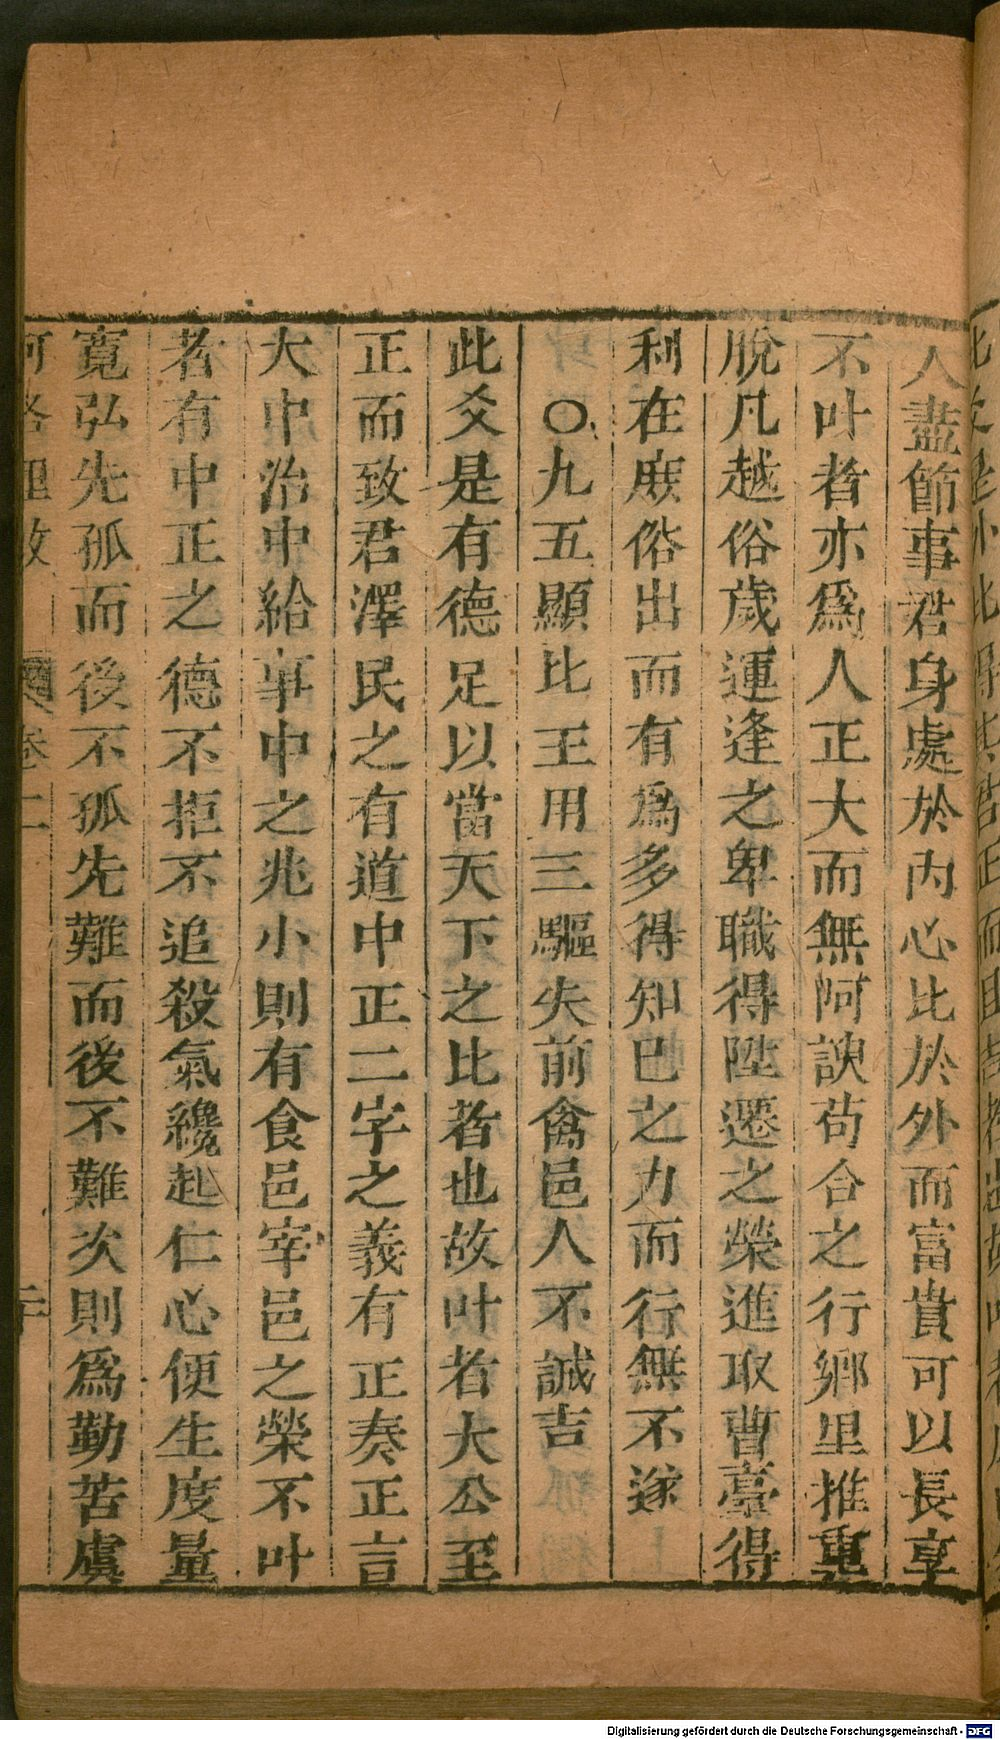 人盡節事君身處於內心比於外而富貴可以長享
不叶者亦爲人正大而無阿諛苟合之行鄉里推重
脫凡越俗歲運逢之卑職得陞遷之榮進取曹臺得
利在庶俗出而有爲多得知巳之力而行無不遂
〇九五顯比王用三驅失前禽邑人不誠吉
此爻是有德足以當天下之比者也故叶者大公至
正而致君澤民之有道中正二字之義有正奏正言
大中治中給事中之兆小則有食邑宰邑之榮不叶
者有中正之德不拒不追殺氣纔起仁心便生度量
寬弘先孤而後不孤先難而後不難次則爲勤苦虞
河洛理數 卷二
Digitalisierung gefördert durch die Deutsche Forschungsgemeinschaft - DFG